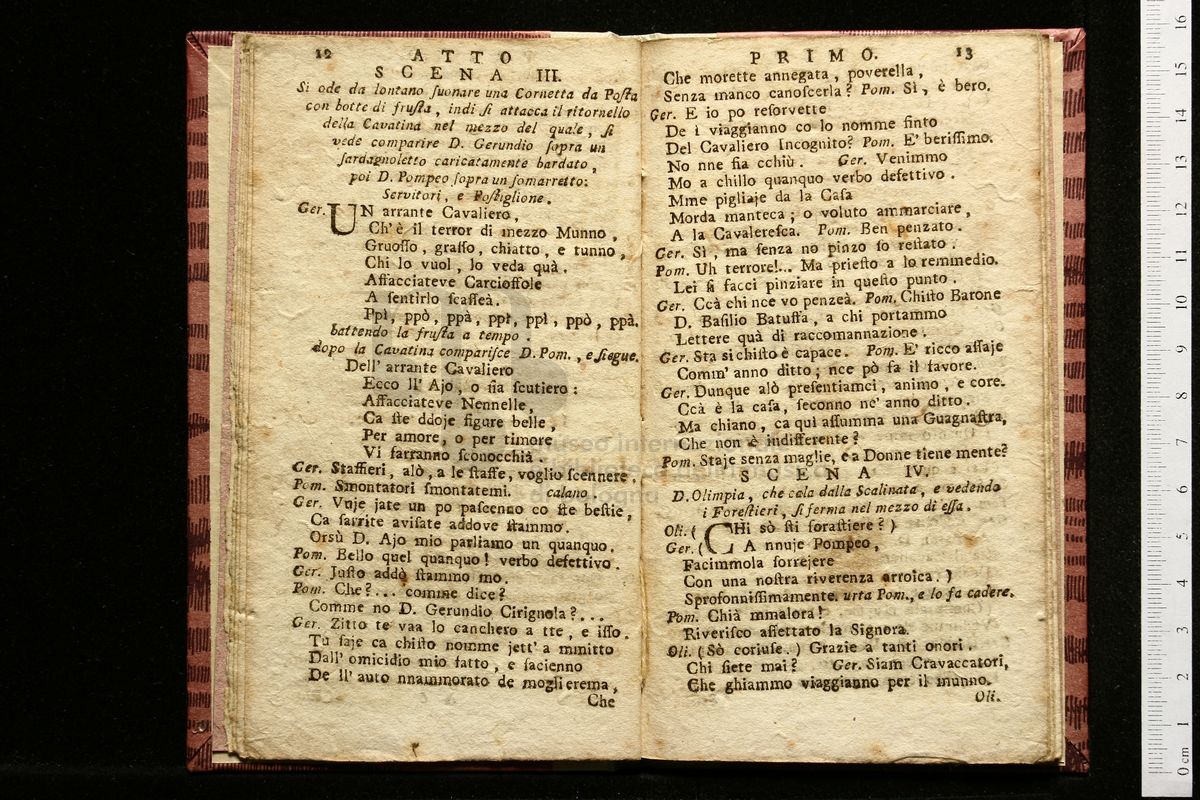 12 ATTO
SCENA III.
Si ode da lontano ſuonare una Cornetta da Poſta
con botte di fruſta, indi ſi attacca il ritornello
della Cavatina nel mezzo del quale, ſi
vede comparire D. Gerundio ſopra un
ſardagnoletto caricatamente bardato,
poi D. Pompeo ſopra un ſomarretto:
Servitori, e Poſtiglione.
Ger. UN arrante Cavaliero,
Ch' è il terror di mezzo Munno,
Gruoſſo, graſſo, chiatto, e tunno,
Chi lo vuol, lo veda quà.
Affacciateve Carcioffole
A ſentirlo ſcaſſeà.
Ppì, ppò, ppà, ppì, ppì, ppò, ppà.
battendo la fruſta a tempo.
dopo la Cavatina compariſce D. Pom., e ſiegue.
Dell' arrante Cavaliero
Ecco ll' Ajo, o ſia ſcutiero:
Affacciateve Nennelle,
Ca ſte ddoje figure belle,
Per amore, o per timore
Vi farranno ſconocchià.
Ger. Staffieri, alò, a le ſtaffe, voglio ſcennere.
Pom. Smontatori ſmontatemi. calano.
Ger. Vuje jate un po paſcenno co ſte beſtie,
Ca ſarrite aviſate addove ſtammo.
Orsù D. Ajo mio parliamo un quanquo.
Pom. Bello quel quanquo! verbo defettivo.
Ger. Juſto addò ſtammo mo.
Pom. Che?... comme dice?
Comme no D. Gerundio Cirignola?...
Ger. Zitto te vaa lo canchero a tte, e iſſo.
Tu ſaje ca chiſto nomme jett' a mmitto
Dall' omicidio mio fatto, e facienno
De ll' auto nnammorato de moglierema,
Che
PRIMO. 13
Che morette annegata, poverella,
Senza manco canoſcerla? Pom. Sì, è bero.
Ger. E io po reſorvette
De i viaggianno co lo nomme finto
Del Cavaliero Incognito? Pom. E' beriſſimo.
No nne ſia cchiù. Ger. Venimmo
Mo a chillo quanquo verbo defettivo.
Mme pigliaje da la Caſa
Morda manteca; o voluto ammarciare,
A la Cavalereſca. Pom. Ben penzato.
Ger. Sì, ma ſenza no pinzo ſo reſtato.
Pom. Uh terrore!... Ma prieſto a lo remmedio.
Lei ſi facci pinziare in queſto punto.
Ger. Ccà chi nce vo penzeà. Pom. Chiſto Barone
D. Baſilio Batuſſa, a chi portammo
Lettere quà di raccomannazione.
Ger. Sta si chiſto è capace. Pom. E' ricco aſſaje
Comm' anno ditto; nce pò fa il favore.
Ger. Dunque alò preſentiamci, animo, e core.
Ccà è la caſa, ſeconno ne' anno ditto.
Ma chiano, ca quì aſſumma una Guagnaſtra,
Che non è indifferente?
Pom. Staje senza maglie, e a Donne tiene mente?
SCENA IV.
D. Olimpia, che cala dalla Scalinata, e vedendo
i Foreſtieri, ſi ferma nel mezzo di eſſa.
Oli. (CHi sò ſti foraſtiere?)
Ger. (A nnuje Pompeo,
Facimmola ſorrejere
Con una noſtra riverenza arroica.)
Sprofonniſſimamente. urta Pom., e lo fa cadere.
Pom. Chià mmalora!
Riveriſco aſſettato la Signora.
Oli. (Sò coriuſe.) Grazie a tanti onori.
Chi ſiete mai? Ger. Siam Cravaccatori,
Che ghiammo viaggianno per il munno.
Oli.